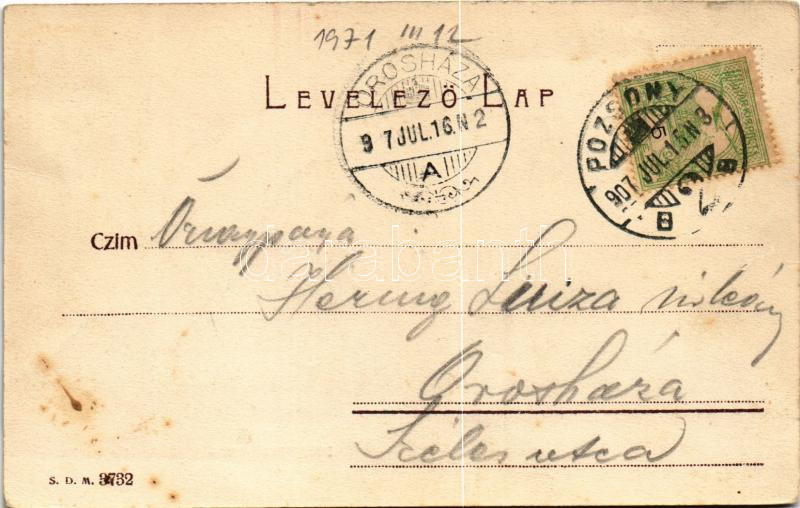 1971 III 12
OROSHÁZA
9 7 JUL.16.N 2
A
LEVELEZŐ-LAP
POZSONY
907 JUL.15.N 3
B B
5
Czim
Hering Luiza
Orosháza
Széles utca
darabanth
S. D. M. 3732